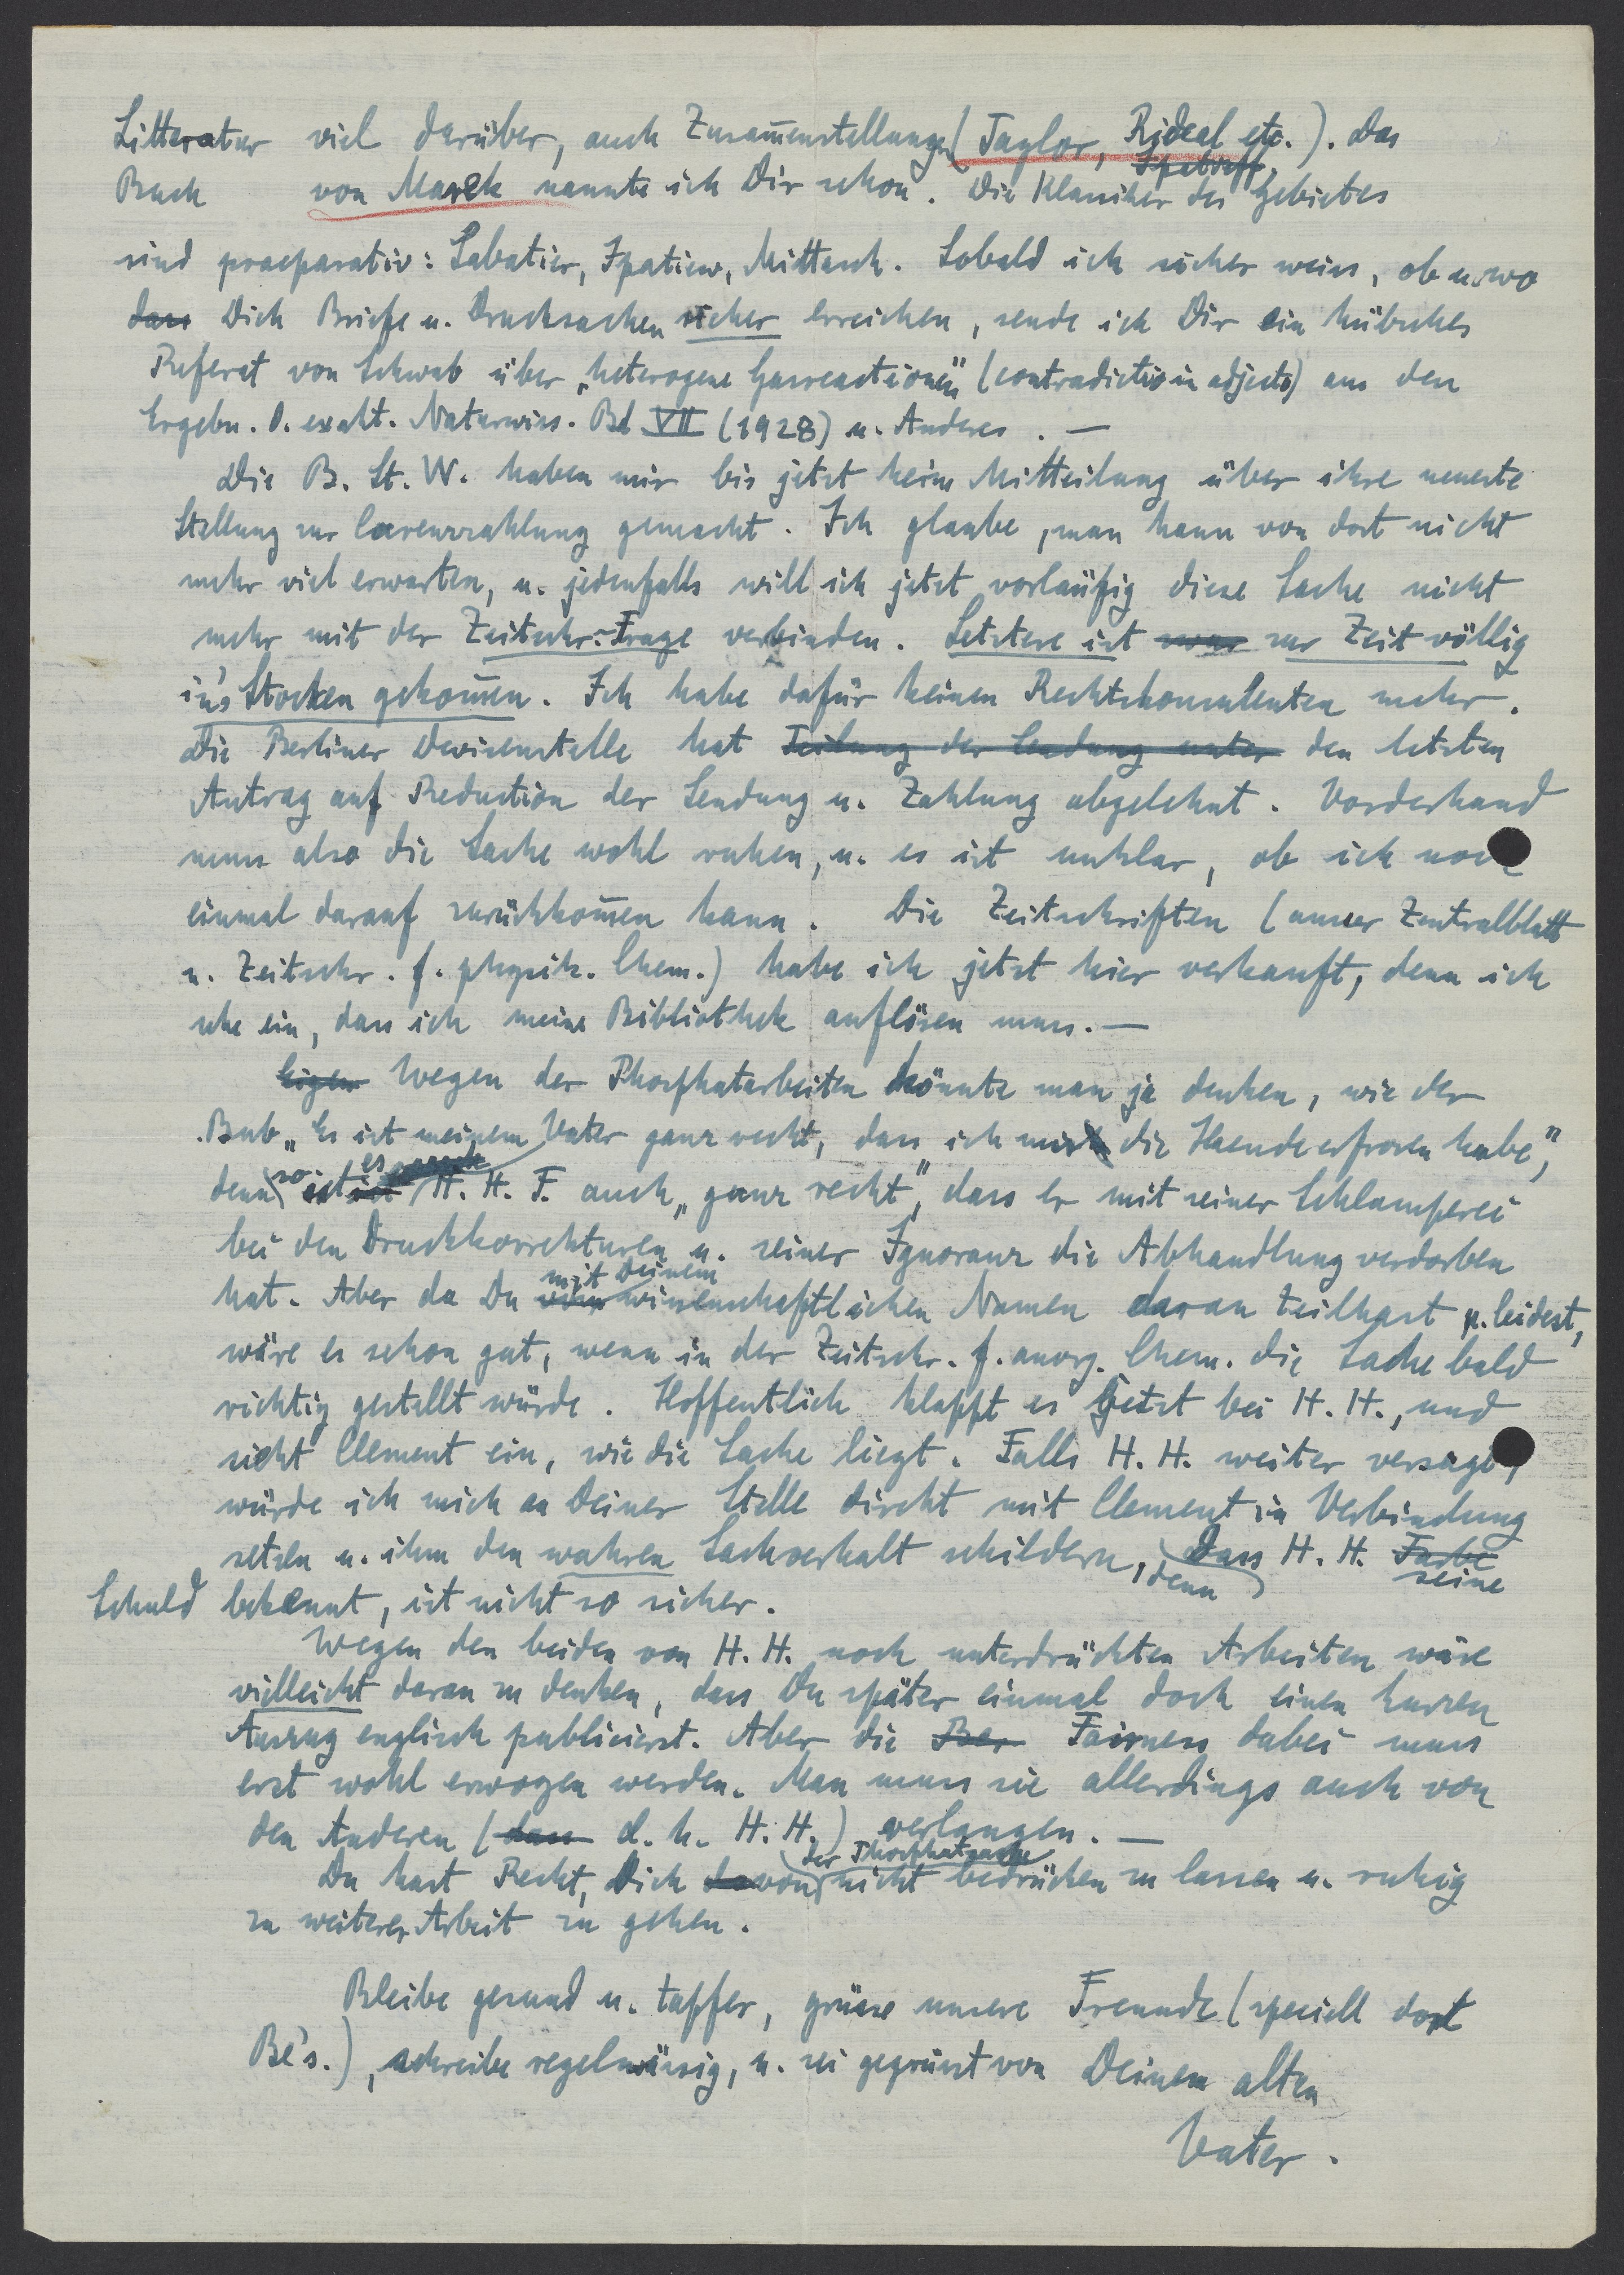 Litteratur viel darüber, auch Zusam̄enstellungen (Taylor, Rideal etc.). Das
Buch von Marek nannte ich Dir schon. Die Klassiker des Gebietes
sind praeparativ: Sabatier, Ipatiew, Mittasch. Sobald ich sicher weiss, ob u. wo
dass Dich Briefe u. Drucksachen sicher erreichen, sende ich Dir ein hübsches
Referat von Schwab über „heterogene Gasreactionen" (contradictio in adjecto) aus den
Ergebn. d. exakt. Naturwiss. Bd VII (1928) u. Anderes. —
Die B. St. W. haben mir bis jetzt keine Mitteilung über ihre neueste
Stellung zur Carenzzahlung gemacht. Ich glaube, man kann von dort nicht
mehr viel erwarten, u. jedenfalls will ich jetzt vorläufig diese Sache nicht
mehr mit der Zeitschr.-Frage verbinden. Letztere ist zwar zur Zeit völlig
in's Stocken gekom̄en. Ich habe dafür keinen Rechtskonsulenten mehr.
Die Berliner Devisenstelle hat Teilung der Sendung unter den letzten
Antrag auf Reduction der Sendung u. Zahlung abgelehnt. Vorderhand
muss also die Sache wohl ruhen, u. es ist unklar, ob ich noch
einmal darauf zurückkom̄en kann. Die Zeitschriften (ausser Zentralblatt
u. Zeitschr. f. physik. Chem.) habe ich jetzt hier verkauft, denn ich
sehe ein, dass ich meine Bibliothek auflösen muss. —
Wegen der Phosphatarbeiten könnte man ja denken, wie der
Bub „Es ist meinem Vater ganz recht, dass ich mir die Haende erfroren habe",
denn so ist es H. H. F. auch „ganz recht", dass er mit seiner Schlamperei
bei den Druckkorrekturen u. seiner Ignoranz die Abhandlung verdorben
hat. Aber da Du mit Deinem wissenschaftlichen Namen daran teilhast u. leidest,
wäre es schon gut, wenn in der Zeitschr. f. anorg. Chem. die Sache bald
richtig gestellt würde. Hoffentlich klappt es jetzt bei H. H., und
sieht Clement ein, wie die Sache liegt. Falls H. H. weiter versagt,
würde ich mich an Deiner Stelle direkt mit Clement in Verbindung
setzen u. ihm den wahren Sachverhalt schildern, denn dass H. H. Farbe seine
Schuld bekennt, ist nicht so sicher.
Wegen den beiden von H. H. noch unterdrückten Arbeiten wäre
vielleicht daran zu denken, dass Du später einmal doch einen kurzen
Auszug englisch publicierst. Aber die Ber Fairness dabei muss
erst wohl erwogen werden. Man muss sie allerdings auch von
den Anderen (dass d. h. H. H.) verlangen. —
Du hast Recht, Dich von der Phosphatsache nicht bedrücken zu lassen u. ruhig
zu weiterer Arbeit zu gehen.
Bleibe gesund u. tapfer, grüsse unsere Freunde (speciell dort
Be's.), schreibe regelmässig, u. sei gegrüsst von Deinem alten
Vater.